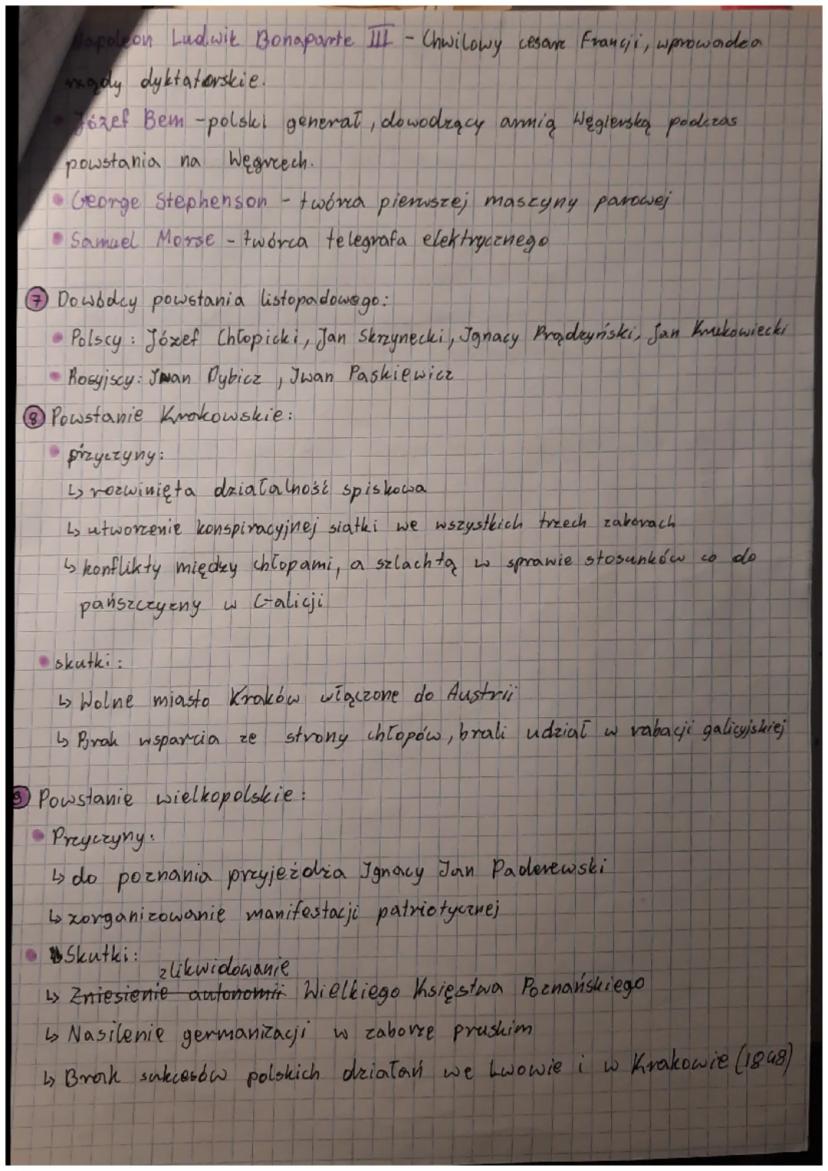 Napoleon Ludwik Bonaparte III - Chwilowy cesarz Francji, wprowadza
rządy dyktatorskie.
• Józef Bem - polski generał, dowodzący armią Węgierską podczas
powstania na Węgrzech.
• George Stephenson - twórca pierwszej maszyny parowej
• Samuel Morse - twórca telegrafa elektrycznego
7 Dowódcy powstania listopadowego:
• Polscy: Józef Chłopicki, Jan Skrzynecki, Ignacy Prądzyński, Jan Krukowiecki
• Rosyjscy: Iwan Dybicz, Iwan Paskiewicz
8 Powstanie Krakowskie:
• przyczyny:
↳ rozwinięta działalność spiskowa
↳ utworzenie konspiracyjnej siatki we wszystkich trzech zaborach
↳ konflikty między chłopami, a szlachtą w sprawie stosunków co do
pańszczyzny w Galicji
• skutki:
↳ Wolne miasto Kraków włączone do Austrii
↳ Brak wsparcia ze strony chłopów, brali udział w rabacji galicyjskiej
9 Powstanie wielkopolskie:
• Przyczyny:
↳ do poznania przyjeżdża Ignacy Jan Paderewski
↳ zorganizowanie manifestacji patriotycznej
• Skutki:
zlikwidowanie
↳ Zniesienie autonomii Wielkiego Księstwa Poznańskiego
↳ Nasilenie germanizacji w zaborze pruskim
↳ Brak sukcesów polskich działań we Lwowie i w Krakowie (1848)